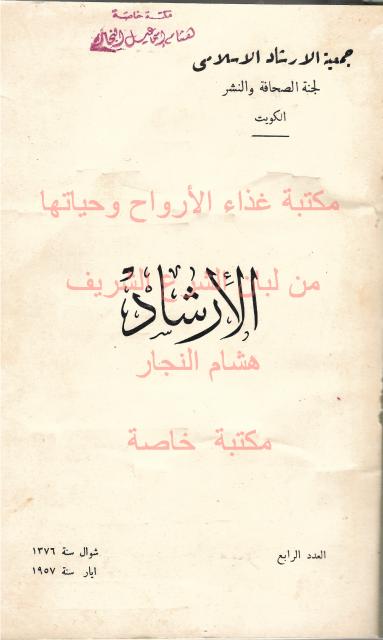 مكتبة خاصة
هشام إسماعيل النجار
جمعية الارشاد الاسلامى
لجنة الصحافة والنشر
الكويت
مكتبة غذاء الأرواح وحياتها
من لباب الشرع الشريف
الإرشاد
هشام النجار
مكتبة خاصة
العدد الرابع
شوال سنة ١٣٧٦
ايار سنة ١٩٥٧